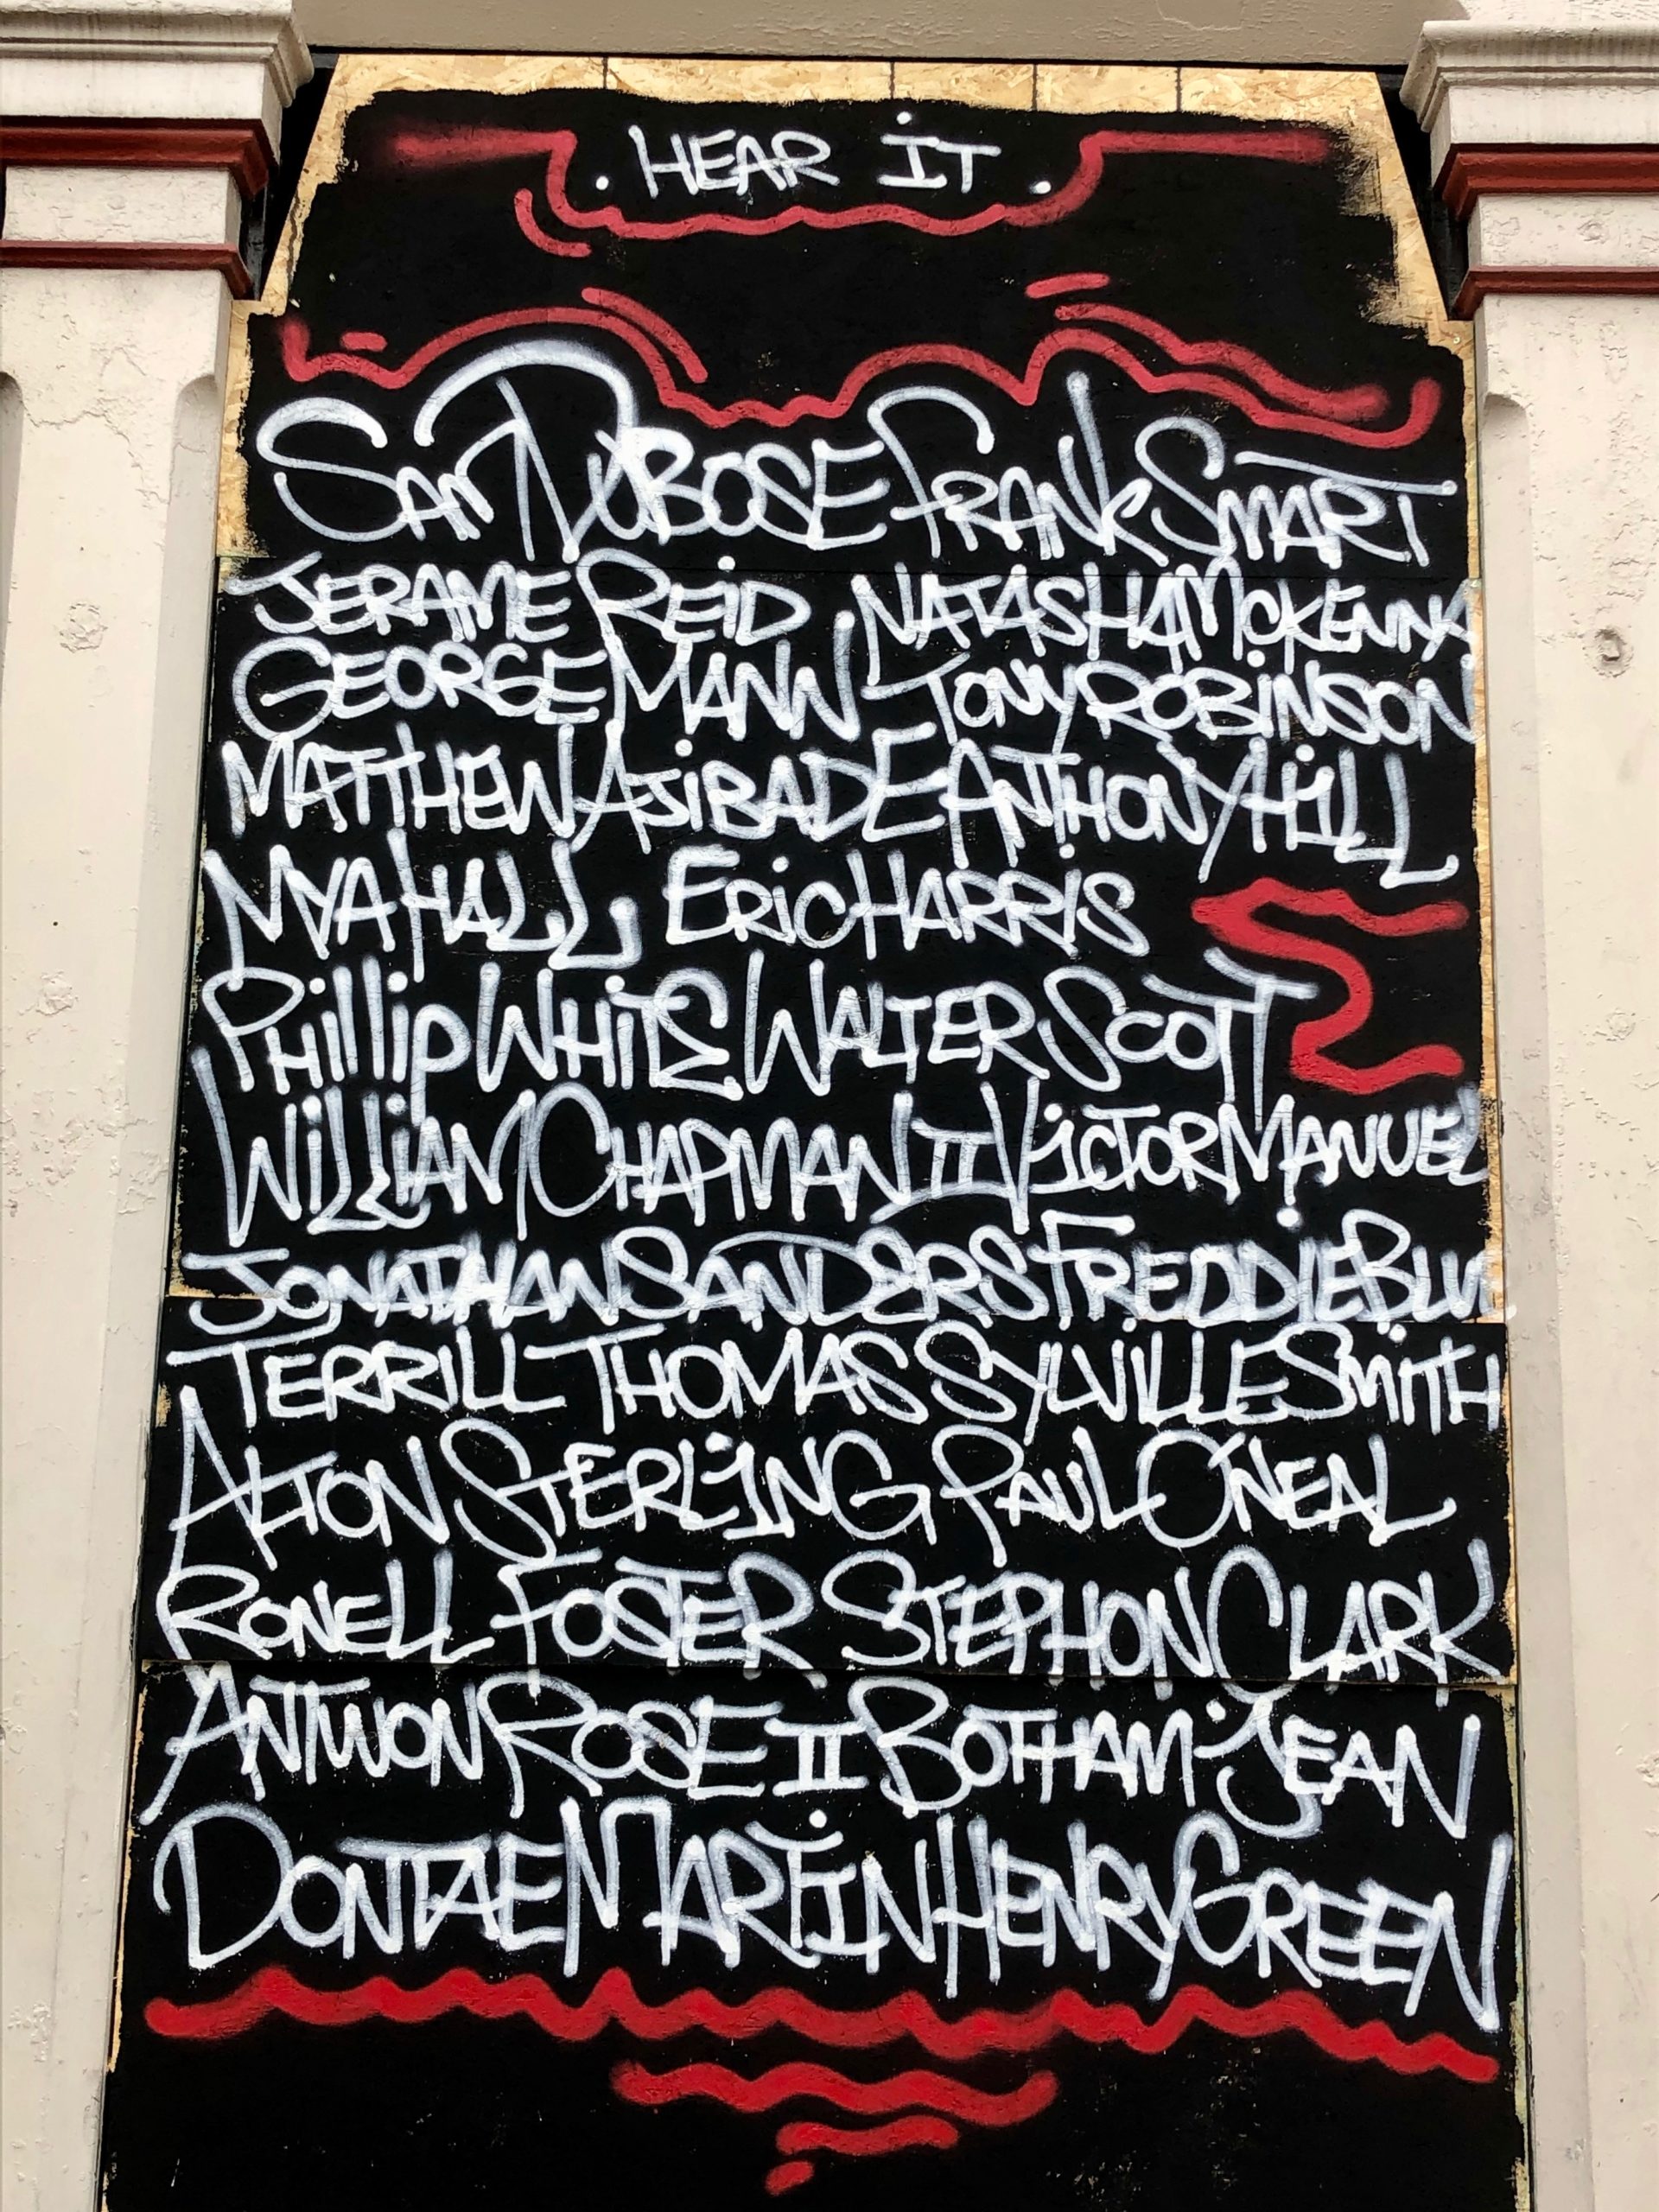 . HEAR IT .
SAM DUBOSE FRANK SMART
JERAME REID NATASHA MCKENNA
GEORGE MANN TONY ROBINSON
MATTHEW AJIBADE ANTHONY HILL
MYA HALL ERIC HARRIS
PHILLIP WHITE WALTER SCOTT
WILLIAM CHAPMAN II VICTOR MANUEL
JONATHAN SANDERS FREDDIE BLUE
TERRILL THOMAS SYLVILLE SMITH
ALTON STERLING PAUL O'NEAL
RONELL FOSTER STEPHON CLARK
ANTWON ROSE II BOTHAM JEAN
DONTAE MARTIN HENRY GREEN